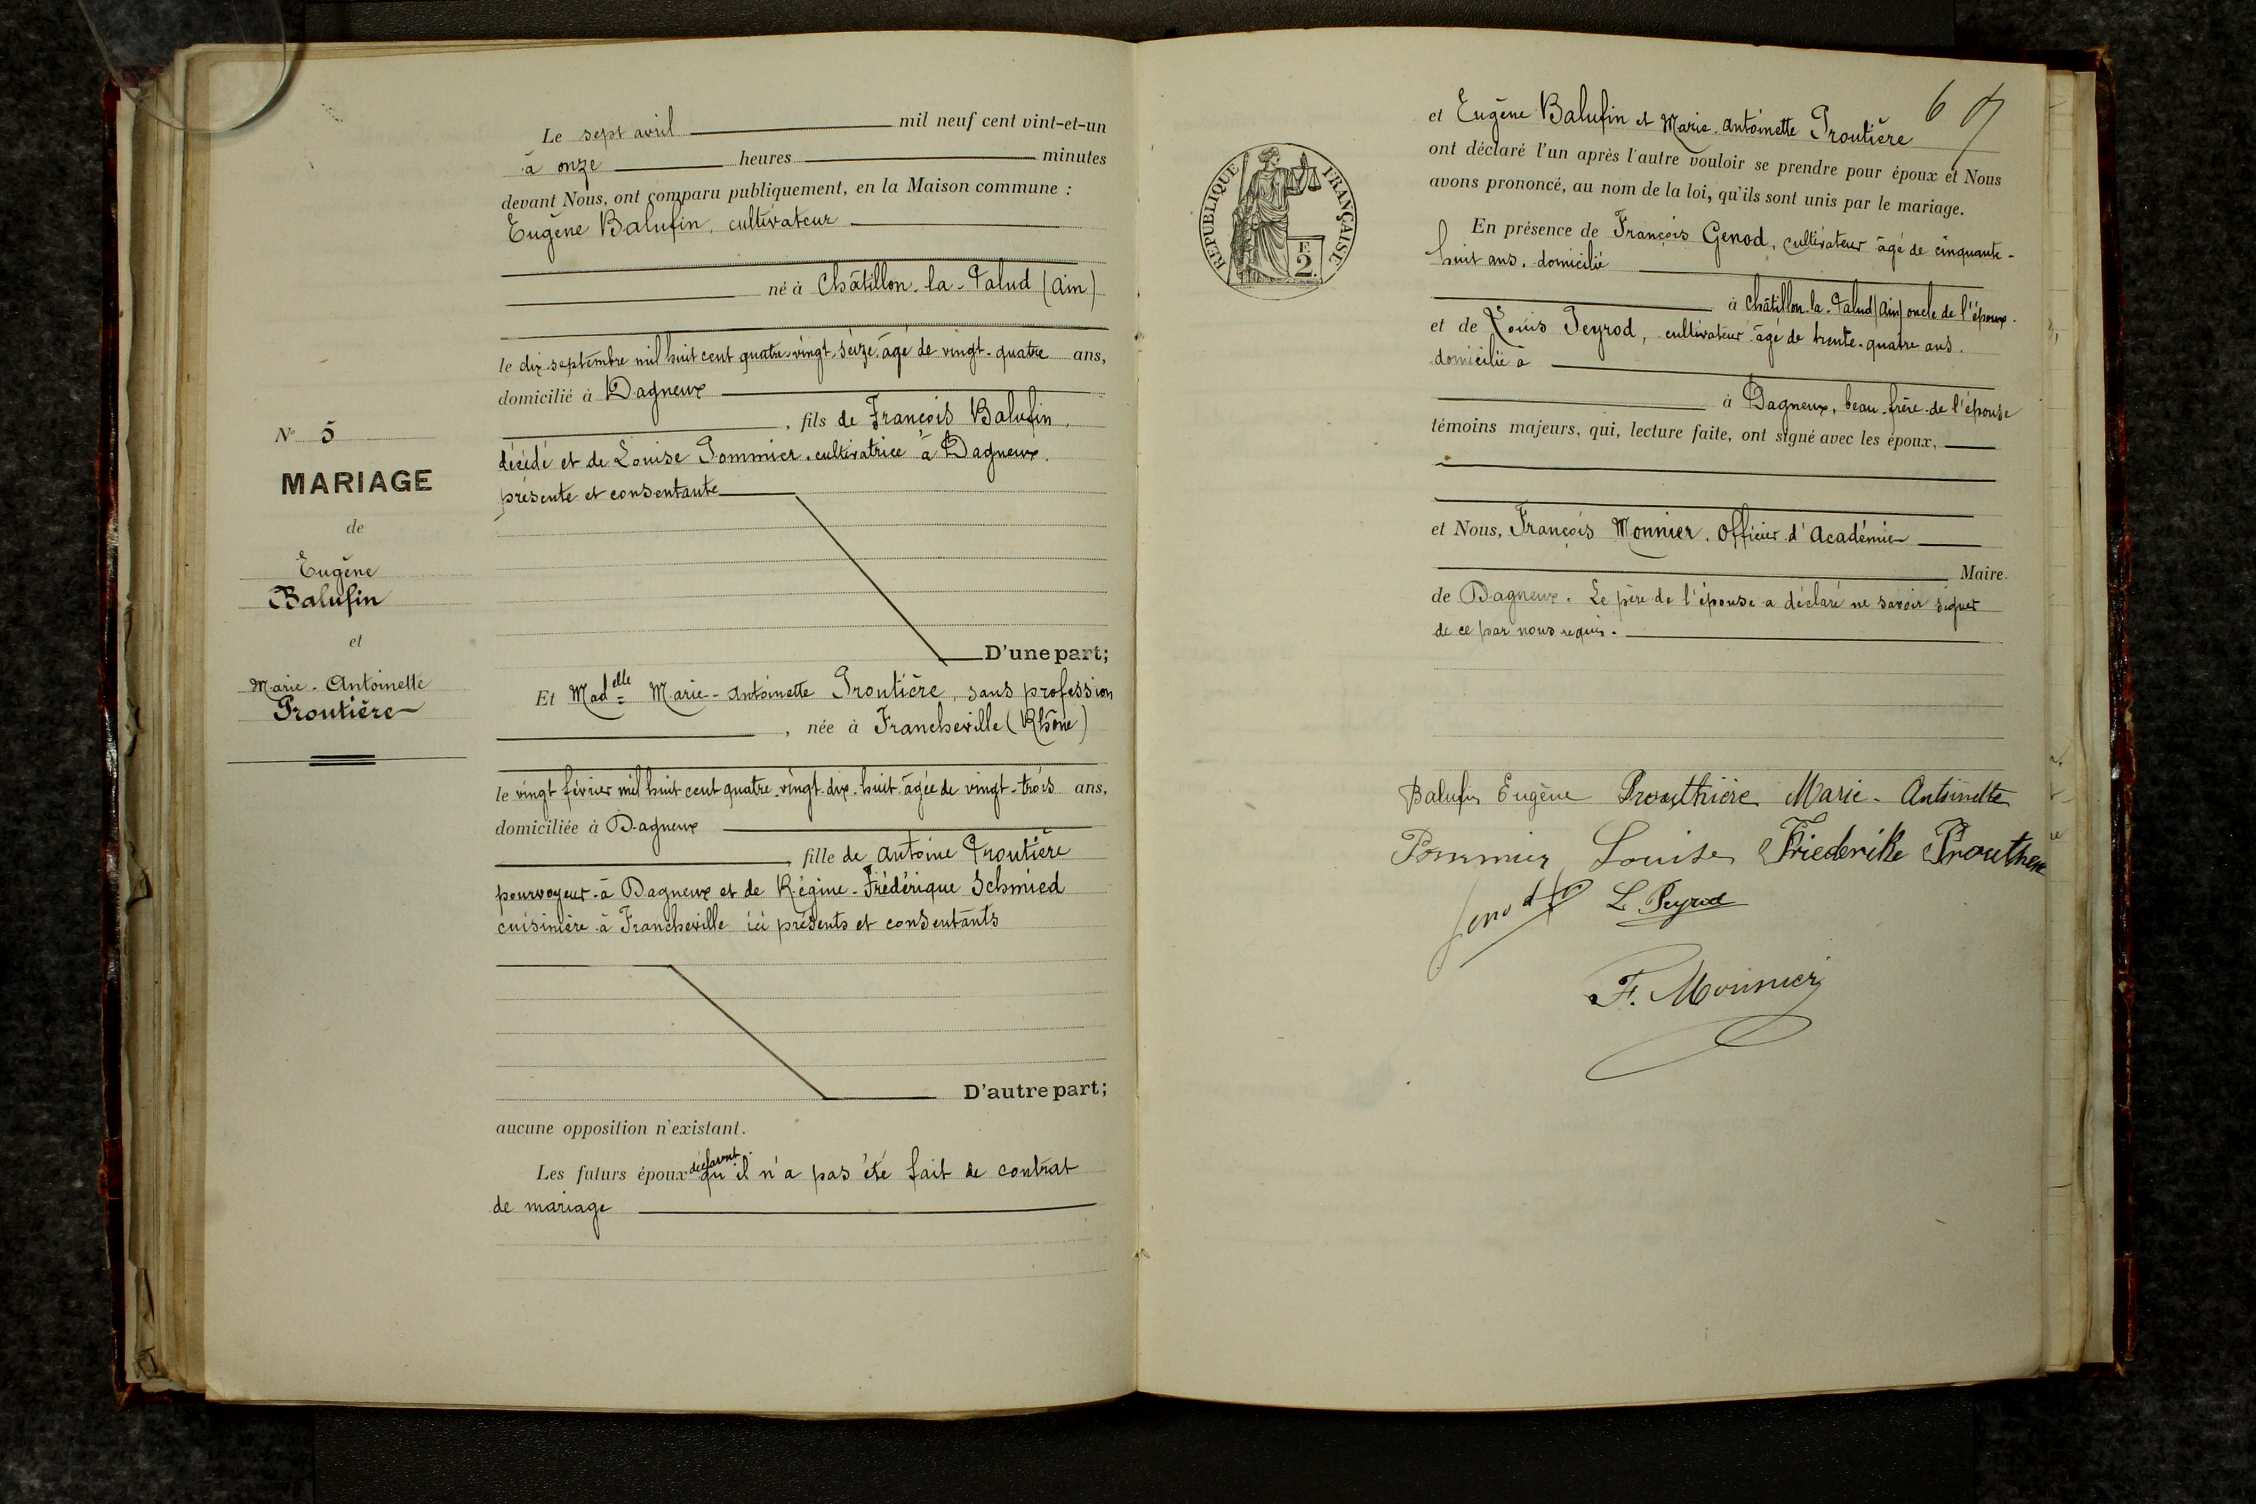 Le sept avril mil neuf cent vint-et-un
à onze heures minutes
devant Nous, ont comparu publiquement, en la Maison commune :
Eugène Balufin, cultivateur
né à Châtillon-la-Palud (Ain)
le dix septembre mil huit cent quatre-vingt-seize âgé de vingt-quatre ans,
domicilié à Dagneux
, fils de François Balufin,
décédé et de Louise Pommier, cultivatrice à Dagneux.
présente et consentante
D'une part;
N° 5
MARIAGE
de
Eugène
Balufin
et
Marie-Antoinette
Proutière
Et Madelle Marie-Antoinette Proutière, sans profession
, née à Francheville (Rhône)
le vingt février mil huit cent quatre-vingt-dix-huit âgée de vingt-trois ans,
domiciliée à Dagneux
, fille de Antoine Proutière
pourvoyeur à Dagneux et de Régine-Frédérique Schmied
cuisinière à Francheville ici présents et consentants
D'autre part;
aucune opposition n'existant.
Les futurs époux déclarent qu'il n'a pas été fait de contrat
de mariage
6
REPUBLIQUE FRANÇAISE
F.
2.
et Eugène Balufin et Marie-Antoinette Proutière
ont déclaré l'un après l'autre vouloir se prendre pour époux et Nous
avons prononcé, au nom de la loi, qu'ils sont unis par le mariage.
En présence de François Genod, cultivateur âgé de cinquante-
huit ans, domicilié
à Châtillon-la-Palud (Ain) oncle de l'époux.
et de Louis Peyrod, cultivateur âgé de trente-quatre ans.
domicilié à
à Dagneux, beau-frère de l'épouse
témoins majeurs, qui, lecture faite, ont signé avec les époux,
et Nous, François Monnier, Officier d'Académie
Maire
de Dagneux. Le père de l'épouse a déclaré ne savoir signer
de ce par nous requis.
Balufin Eugène Prouthière Marie-Antoinette
Pommier Louise Friederike Prouthere
Genod L. Peyrod
F. Monnier